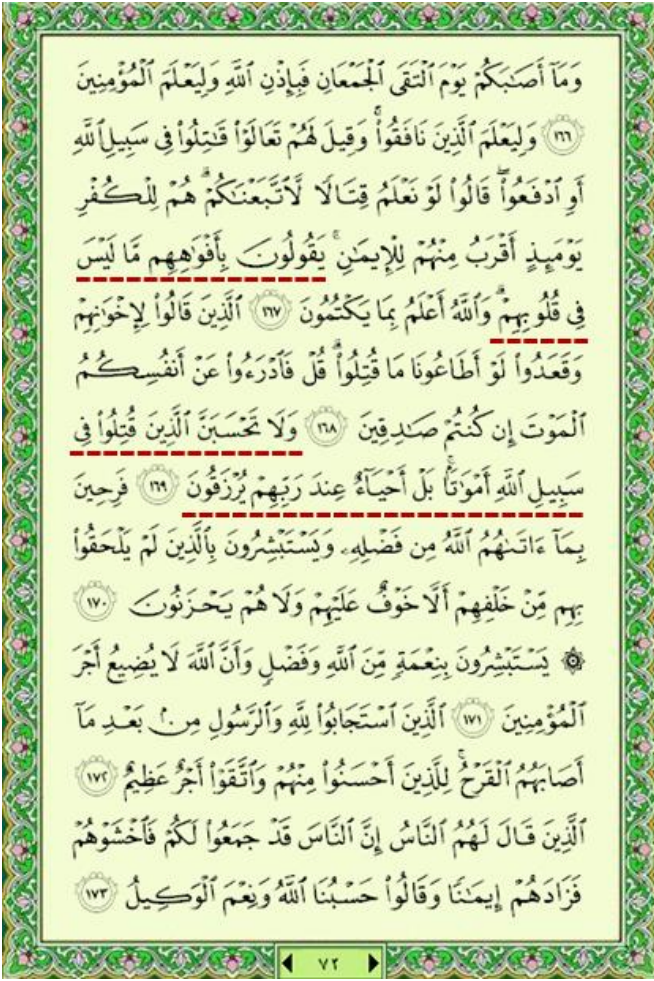 وَمَآ أَصَٰبَكُمْ يَوْمَ ٱلْتَقَى ٱلْجَمْعَانِ فَبِإِذْنِ ٱللَّهِ وَلِيَعْلَمَ ٱلْمُؤْمِنِينَ
١٦٦ وَلِيَعْلَمَ ٱلَّذِينَ نَافَقُوا۟ ۚ وَقِيلَ لَهُمْ تَعَالَوْا۟ قَٰتِلُوا۟ فِى سَبِيلِ ٱللَّهِ
أَوِ ٱدْفَعُوا۟ ۖ قَالُوا۟ لَوْ نَعْلَمُ قِتَالًا لَّٱتَّبَعْنَٰكُمْ ۗ هُمْ لِلْكُفْرِ
يَوْمَئِذٍ أَقْرَبُ مِنْهُمْ لِلْإِيمَٰنِ ۚ يَقُولُونَ بِأَفْوَٰهِهِم مَّا لَيْسَ
فِى قُلُوبِهِمْ ۗ وَٱللَّهُ أَعْلَمُ بِمَا يَكْتُمُونَ ١٦٧ ٱلَّذِينَ قَالُوا۟ لِإِخْوَٰنِهِمْ
وَقَعَدُوا۟ لَوْ أَطَاعُونَا مَا قُتِلُوا۟ ۗ قُلْ فَٱدْرَءُوا۟ عَنْ أَنفُسِكُمُ
ٱلْمَوْتَ إِن كُنتُمْ صَٰدِقِينَ ١٦٨ وَلَا تَحْسَبَنَّ ٱلَّذِينَ قُتِلُوا۟ فِى
سَبِيلِ ٱللَّهِ أَمْوَٰتًۢا ۚ بَلْ أَحْيَآءٌ عِندَ رَبِّهِمْ يُرْزَقُونَ ١٦٩ فَرِحِينَ
بِمَآ ءَاتَىٰهُمُ ٱللَّهُ مِن فَضْلِهِۦ وَيَسْتَبْشِرُونَ بِٱلَّذِينَ لَمْ يَلْحَقُوا۟
بِهِم مِّنْ خَلْفِهِمْ أَلَّا خَوْفٌ عَلَيْهِمْ وَلَا هُمْ يَحْزَنُونَ ١٧٠
۞ يَسْتَبْشِرُونَ بِنِعْمَةٍ مِّنَ ٱللَّهِ وَفَضْلٍ وَأَنَّ ٱللَّهَ لَا يُضِيعُ أَجْرَ
ٱلْمُؤْمِنِينَ ١٧١ ٱلَّذِينَ ٱسْتَجَابُوا۟ لِلَّهِ وَٱلرَّسُولِ مِنۢ بَعْدِ مَآ
أَصَابَهُمُ ٱلْقَرْحُ ۚ لِلَّذِينَ أَحْسَنُوا۟ مِنْهُمْ وَٱتَّقَوْا۟ أَجْرٌ عَظِيمٌ ١٧٢
ٱلَّذِينَ قَالَ لَهُمُ ٱلنَّاسُ إِنَّ ٱلنَّاسَ قَدْ جَمَعُوا۟ لَكُمْ فَٱخْشَوْهُمْ
فَزَادَهُمْ إِيمَٰنًا وَقَالُوا۟ حَسْبُنَا ٱللَّهُ وَنِعْمَ ٱلْوَكِيلُ ١٧٣
٧٢